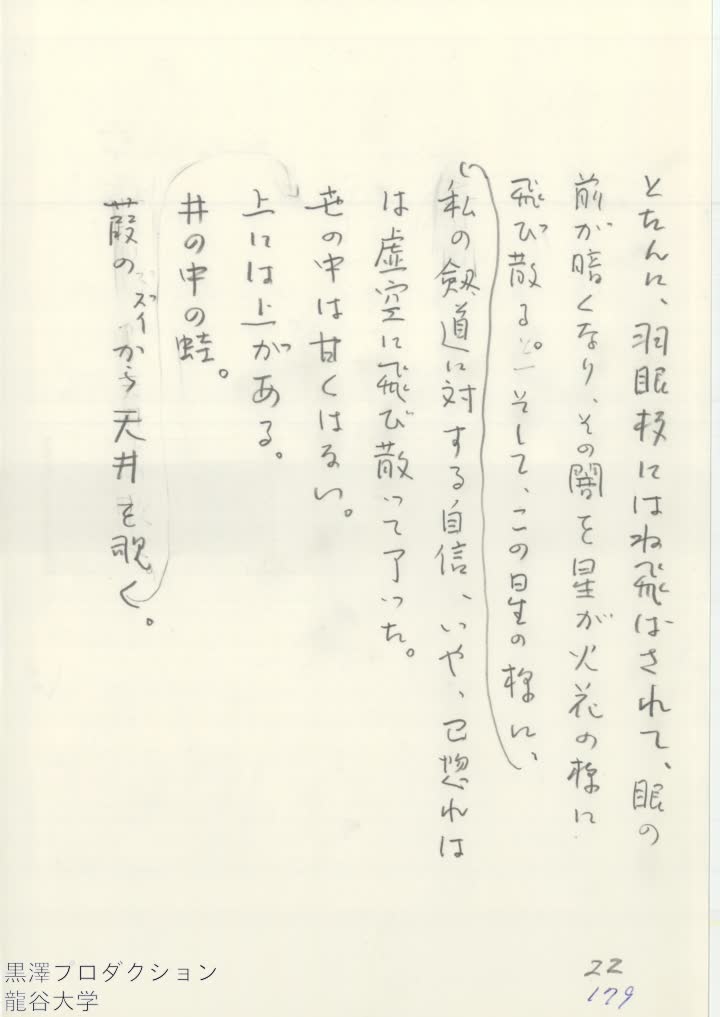 とたんに、羽眼板にはね飛ばされて、眼の
前が暗くなり、その闇を星が火花の様に
飛び散る。そして、この星の様に、
私の劔道に対する自信、いや、己惚れは
は虚空に飛び散って了った。
世の中は甘くはない。
上には上がある。
井の中の蛙。
葭のズイから天井を覗く。
22
179
黒澤プロダクション
龍谷大学